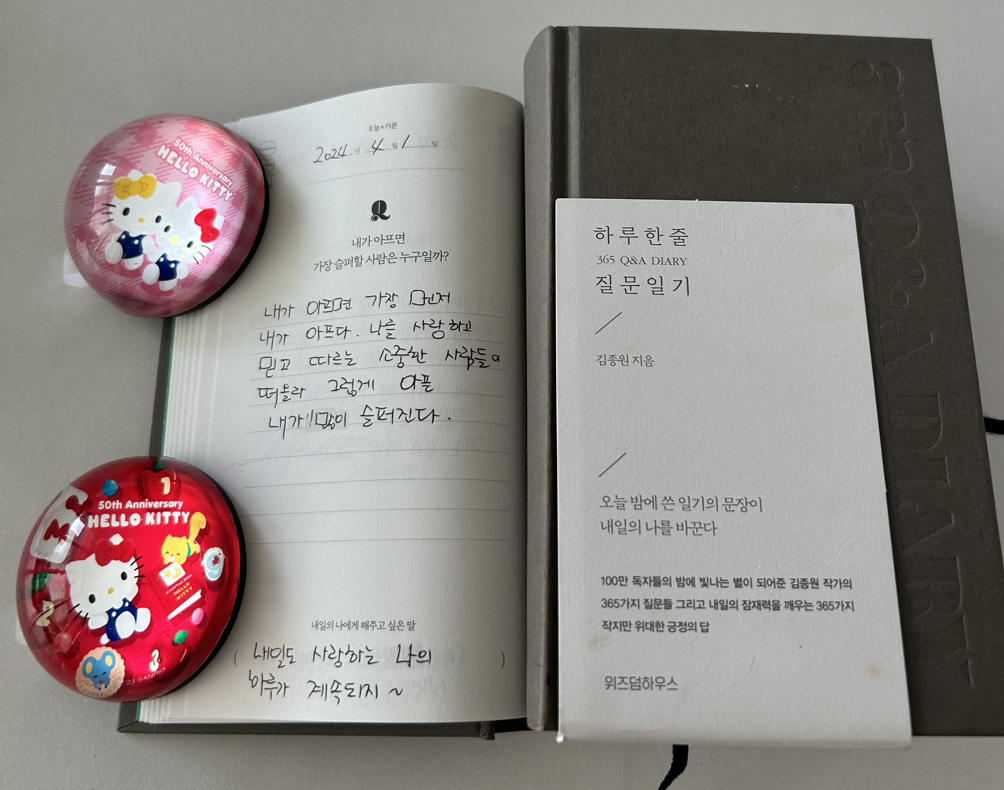 50th Anniversary
HELLO KITTY
50th Anniversary
HELLO KITTY
1
2
3
'23 SANRIO
오늘×기분
2024 년 4 월 1 일
Q
내가 아프면
가장 슬퍼할 사람은 누구일까?
내가 아프면 가장 먼저
내가 아프다. 나를 사랑하고
믿고 따르는 소중한 사람들이
떠올라 그렇게 아픈
내가!! 많이 슬퍼진다.
내일의 나에게 해주고 싶은 말
( 내일도 사랑하는 나의 )
하루가 계속되지 ~
하루 한 줄
365 Q&A DIARY
질문일기
김종원 지음
오늘 밤에 쓴 일기의 문장이
내일의 나를 바꾼다
100만 독자들의 밤에 빛나는 별이 되어준 김종원 작가의
365가지 질문들 그리고 내일의 잠재력을 깨우는 365가지
작지만 위대한 긍정의 답
위즈덤하우스
365 Q&A DIARY